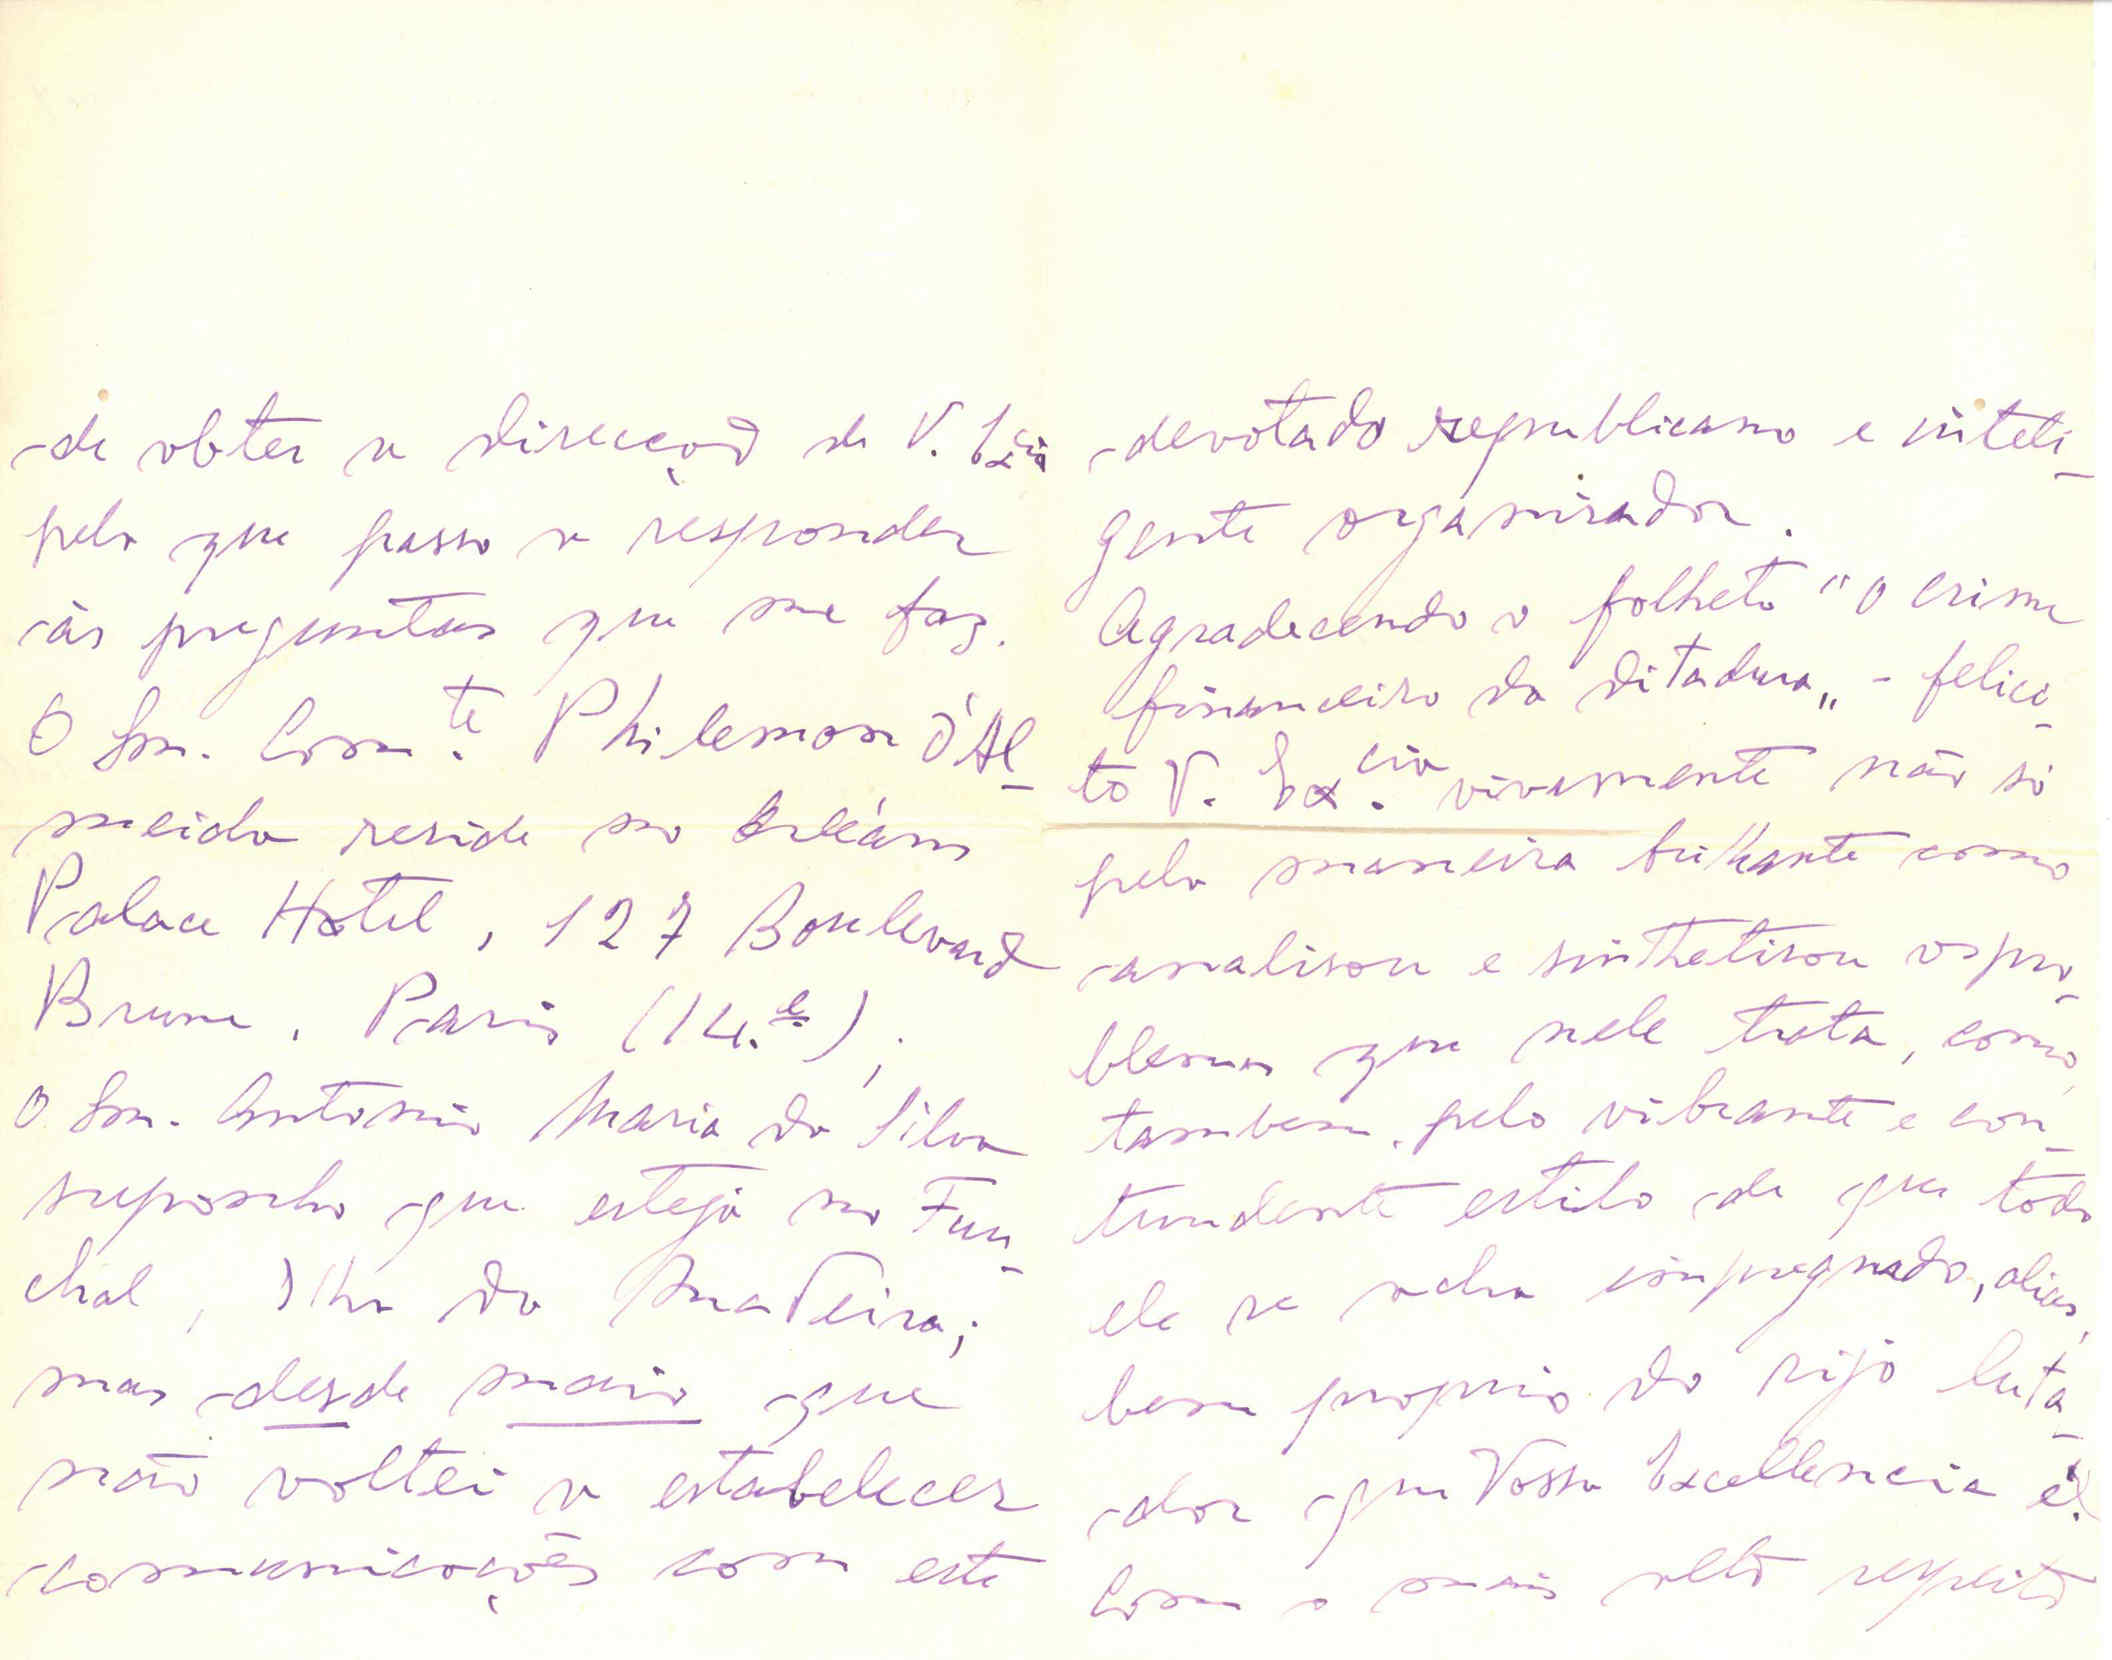 de obter a direcção de V. Ex.cia
pelo que passo a responder
ás preguntas que me faz.
O Snr. Com.te Philemon d'Al-
meida reside no Orleáns
Palace Hotel, 127 Boulevard
Brune, Paris (14.e);
O Snr. Antonio Maria da Silva
suponho que esteja no Fun-
chal, Ilha da Madeira;
mas desde maio que
não voltei a estabelecer
comunicações com este
devotado republicano e inteli-
gente organisador.
Agradecendo o folheto "O crime
financeiro da ditadura" - felici-
to V. Ex.cia vivamente não só
pela maneira brilhante como
analisou e sinthetisou os pro-
blemas que nele trata, como,
tambem, pelo vibrante e con-
tundente estilo de que todo
ele se acha impregnado, alias,
bem proprio do rijo luta-
dor que Vossa Excellencia é.
Com o mais alto respeito